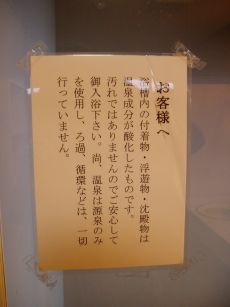 お客様へ
浴槽内の付着物・浮遊物・沈殿物は
温泉成分が酸化したものです。
汚れではありませんのでご安心して
御入浴下さい。尚、温泉は源泉のみ
を使用し、ろ過、循環などは、一切
行っていません。